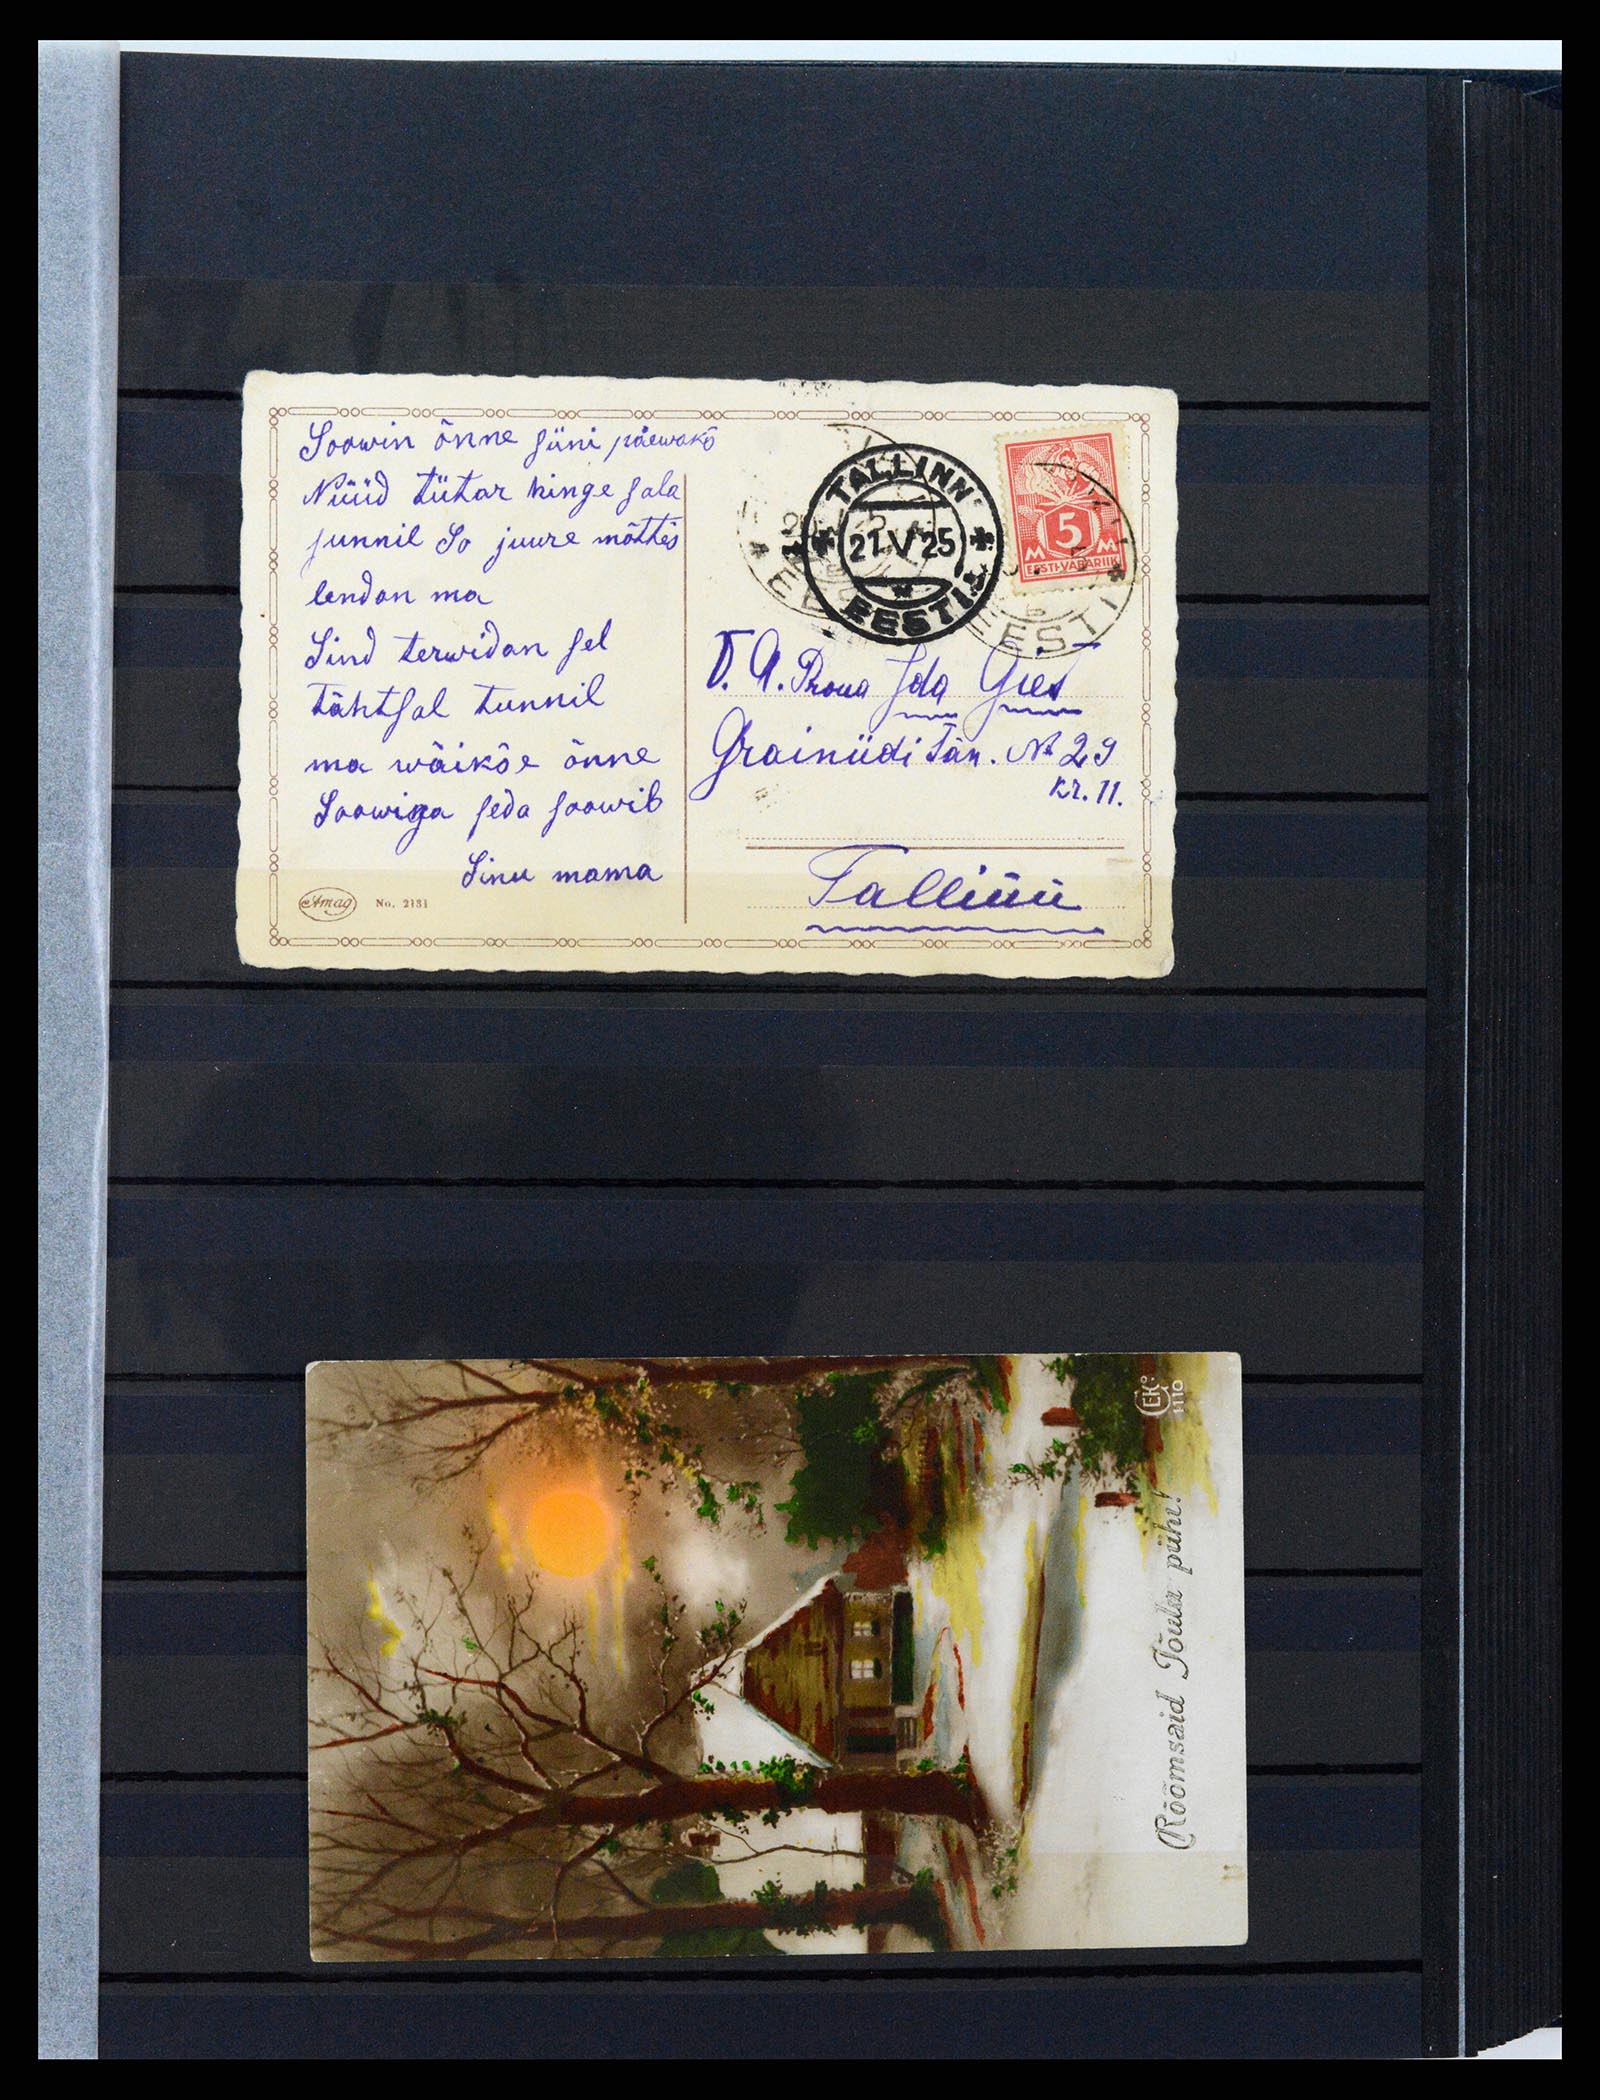 Soowin õnne süni päewaks
Nüüd tütar hinge sala
sunnil So juure mõttes
lendan ma
Sind terwidan sel
tähtsal tunnil
ma wäikse õnne
Soowiga seda soowib
Sinu mama
Amag No. 2131
TALLINN
21.V.25
EESTI
5
M M
EESTI-VABARIIK
EESTI
Proua Ida
Tän. № 29
kr. 11.
Tallinn
EKC
1110
Rõõmsaid Jõulu pühi!